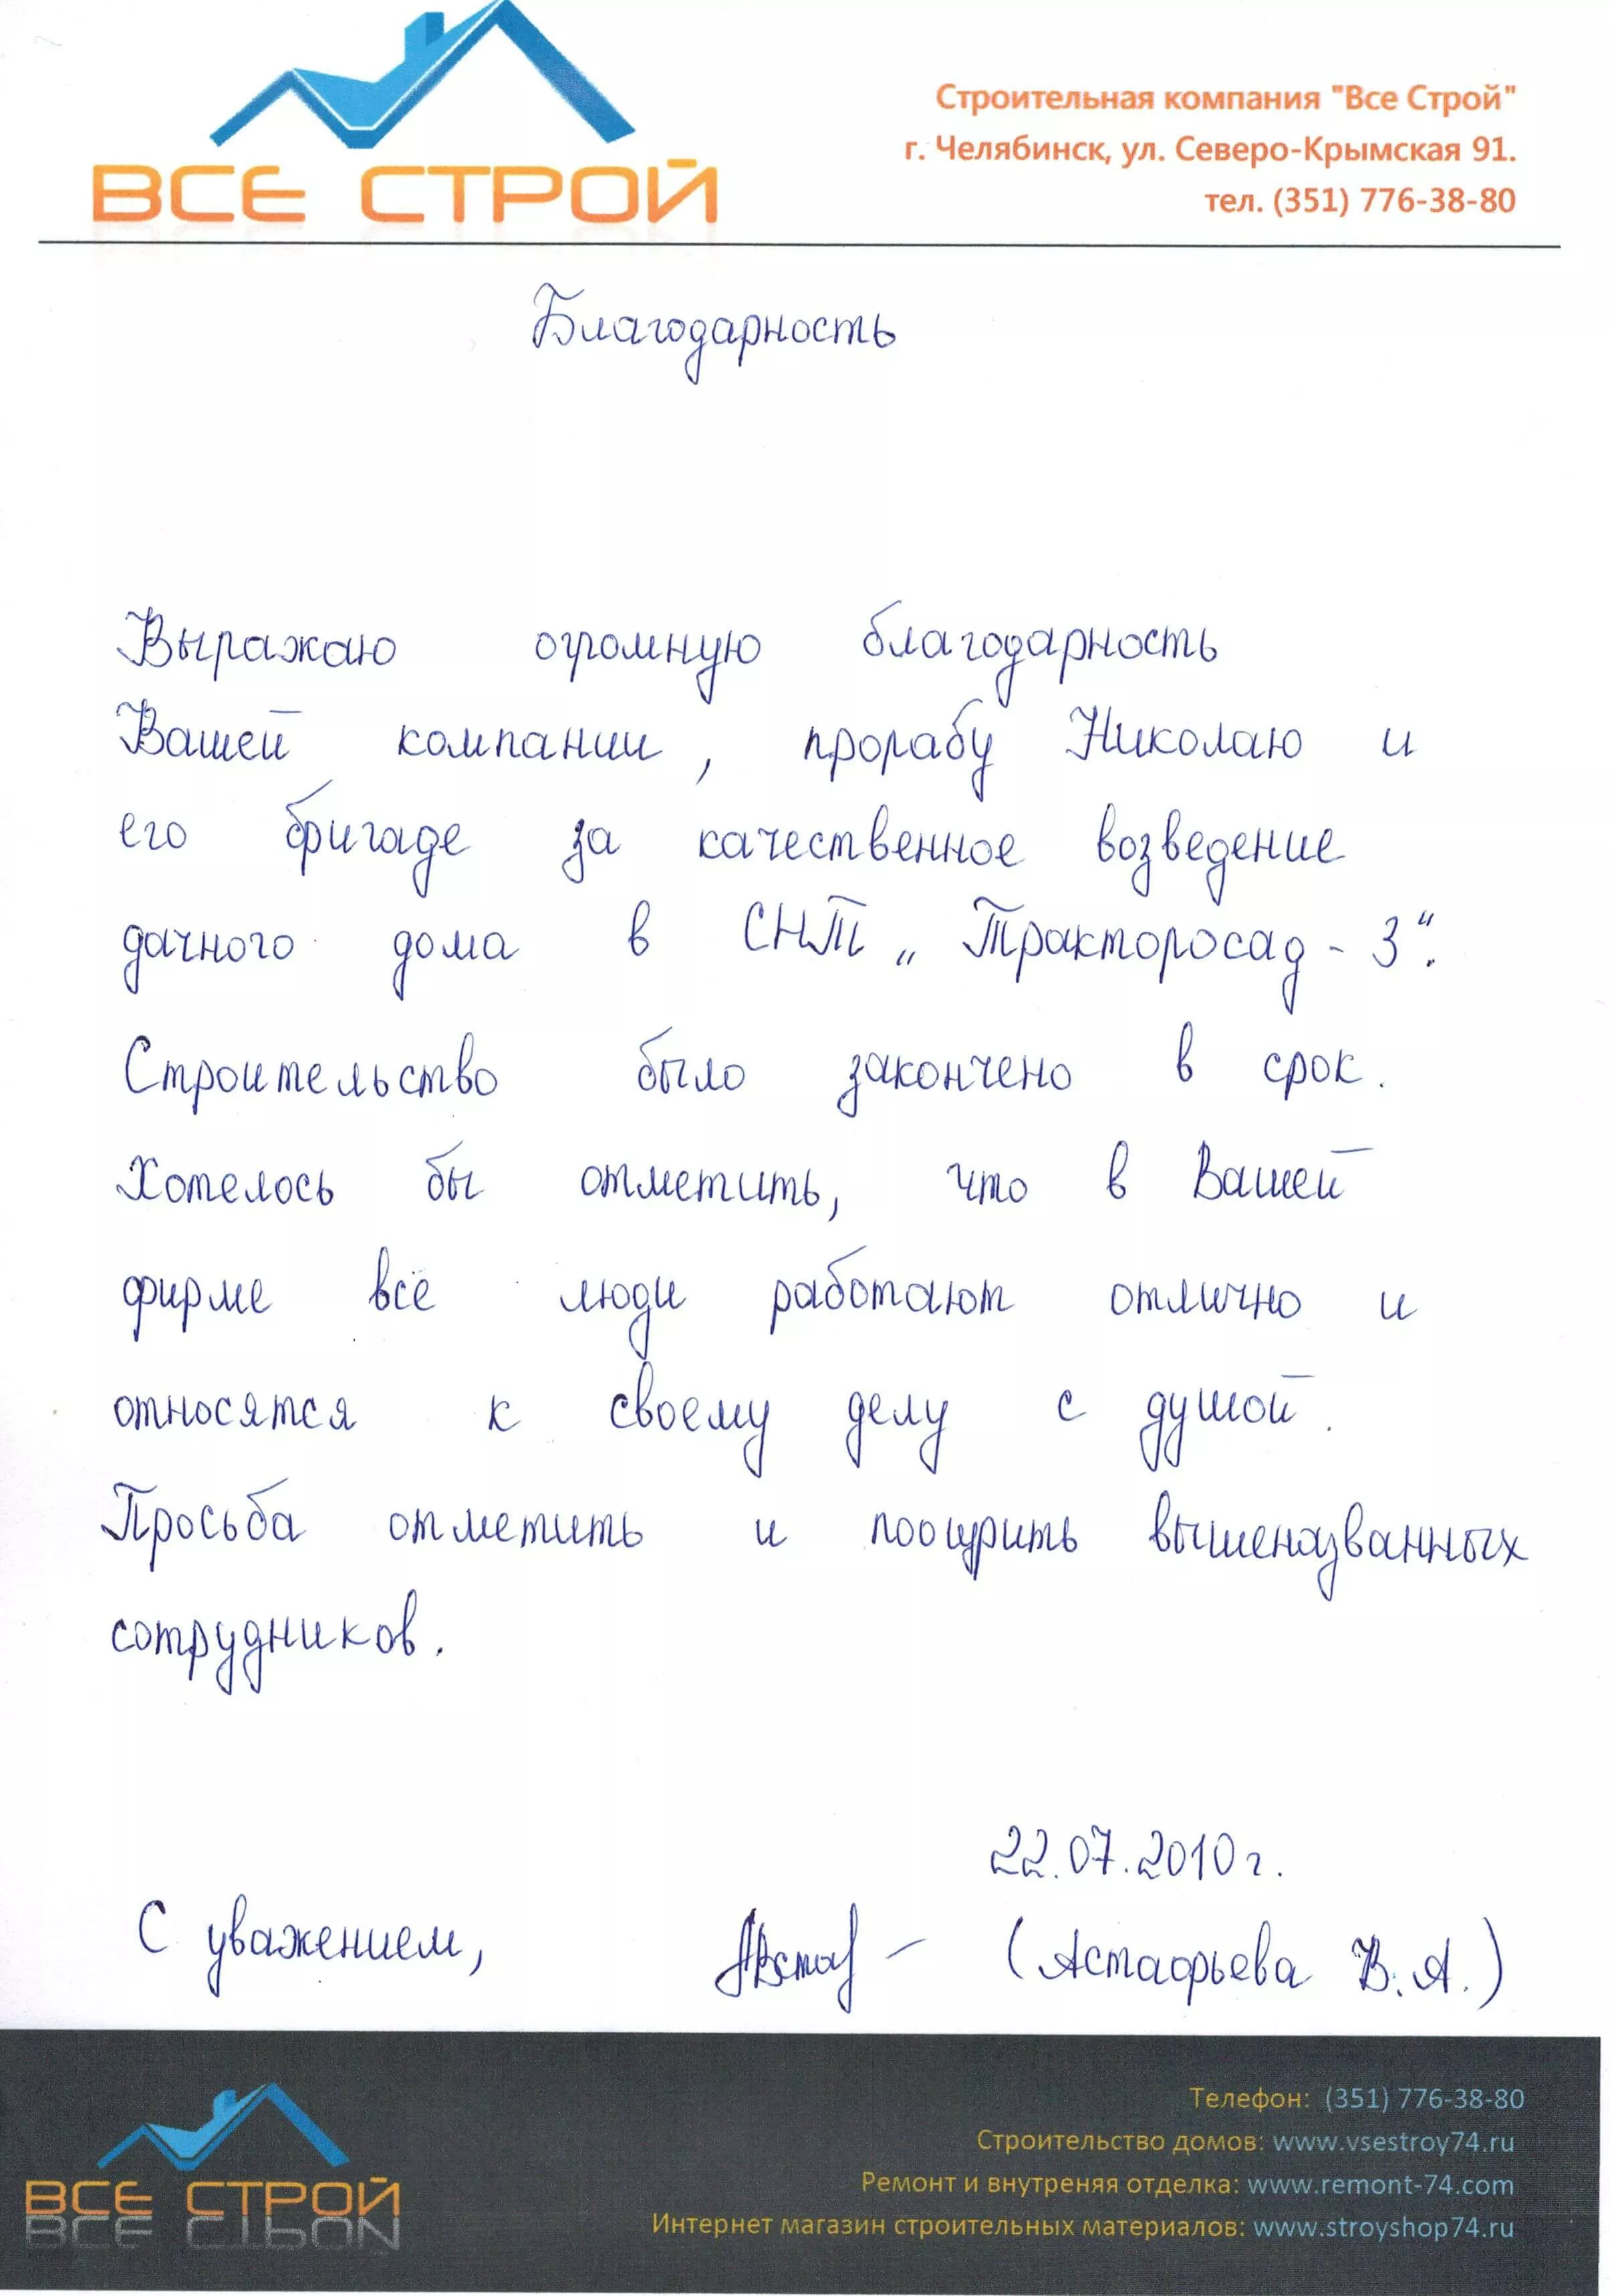 ВСЕ СТРОЙ
Строительная компания "Все Строй"
г. Челябинск, ул. Северо-Крымская 91.
тел. (351) 776-38-80
Благодарность
Выражаю огромную благодарность
Вашей компании, прорабу Николаю и
его бригаде за качественное возведение
дачного дома в СНТ „Тракторосад-3“.
Строительство было закончено в срок.
Хотелось бы отметить, что в Вашей
фирме все люди работают отлично и
относятся к своему делу с душой.
Просьба отметить и поощрить вышеназванных
сотрудников.
22.07.2010г.
С уважением, (Астафьева В.А.)
ВСЕ СТРОЙ
Телефон: (351) 776-38-80
Строительство домов: www.vsestroy74.ru
Ремонт и внутреняя отделка: www.remont-74.com
Интернет магазин строительных материалов: www.stroyshop74.ru